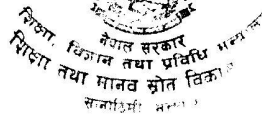 नेपाल सरकार
शिक्षा, विज्ञान तथा प्रविधि
शिक्षा तथा मानव स्रोत विकास
सानोठिमी